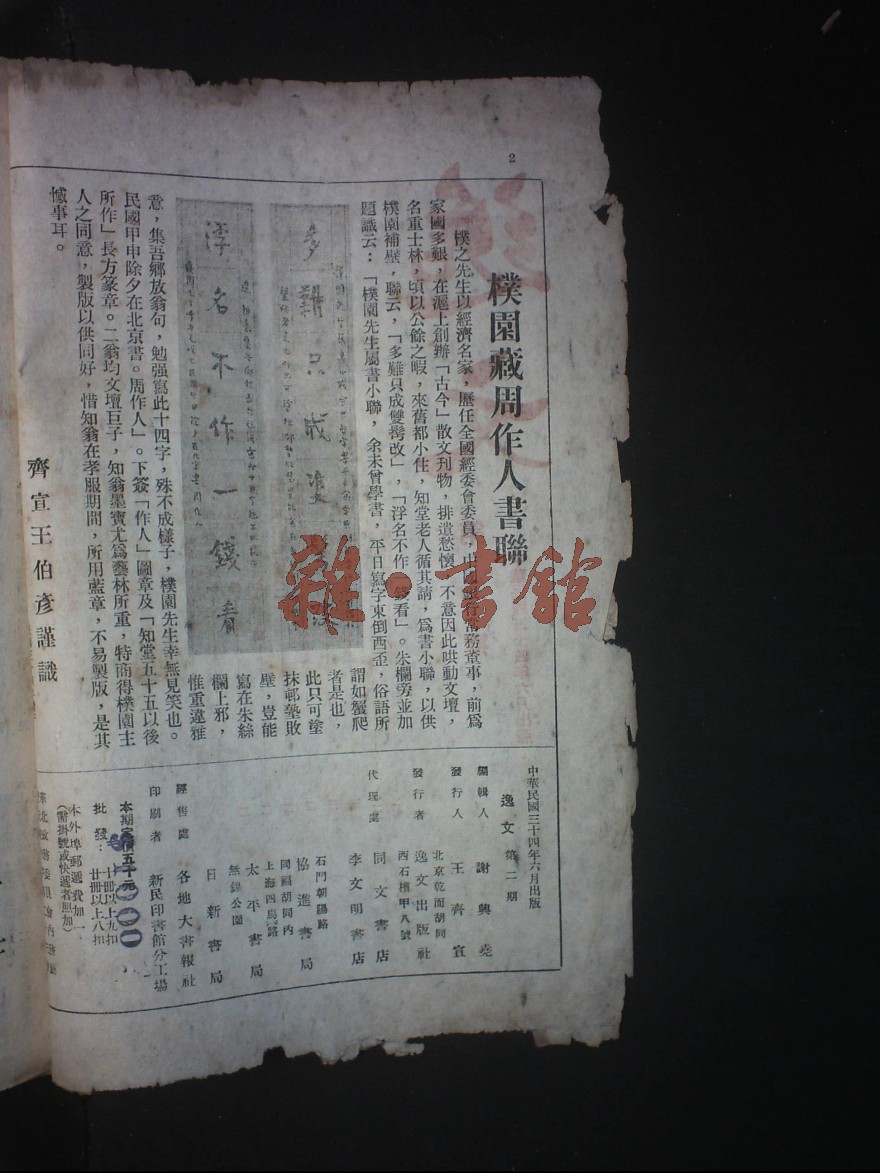 2
樸園藏周作人書聯
樸之先生以經濟名家，歷任全國經委會委員，中
常務董事，前爲
家國多艱，在滬上創辦「古今」散文刊物，排遣愁懷，不意因此哄動文壇，
名重士林，頃以公餘之暇，來舊都小住，知堂老人循其請，爲書小聯，以供
樸園補壁，聯云，「多難只成雙鬢改」，「浮名不作一錢看」。朱欄旁並加
題識云：「樸園先生屬書小聯，余未曾學書，平日寫字東倒西歪，俗語所
謂如蟹爬
者是也，
此只可塗
抹邨塾敗
壁，豈能
寫在朱絲
欄上邪，
惟重違雅
多難只成雙
浮名不作一錢看
意，集吾鄉放翁句，勉强寫此十四字，殊不成樣子，樸園先生幸無見笑也。
民國甲申除夕在北京書。周作人」。下簽「作人」圖章及「知堂五十五以後
所作」長方篆章。二翁均文壇巨子，知翁墨寶尤爲藝林所重，特商得樸園主
人之同意，製版以供同好，惜知翁在孝服期間，所用藍章，不易製版，是其
憾事耳。
齊宣王伯彥謹識
中華民國三十四年六月出版
逸文 第二期
編輯人 謝興堯
發行人 王齊宣
北京乾面胡同
發行者 逸文出版社
西石槽甲八號
代理處 同文書店
李文明書店
石門朝陽路
協進書局
同福胡同內
上海四馬路
太平書局
無錫公園
日新書局
經售處 各地大書報社
印刷者 新民印書館分工場
本期定價五千元
批發：
十冊以上九扣
廿冊以上八扣
本外埠郵遞費加一
（需掛號或快遞者照加）
雜·書館